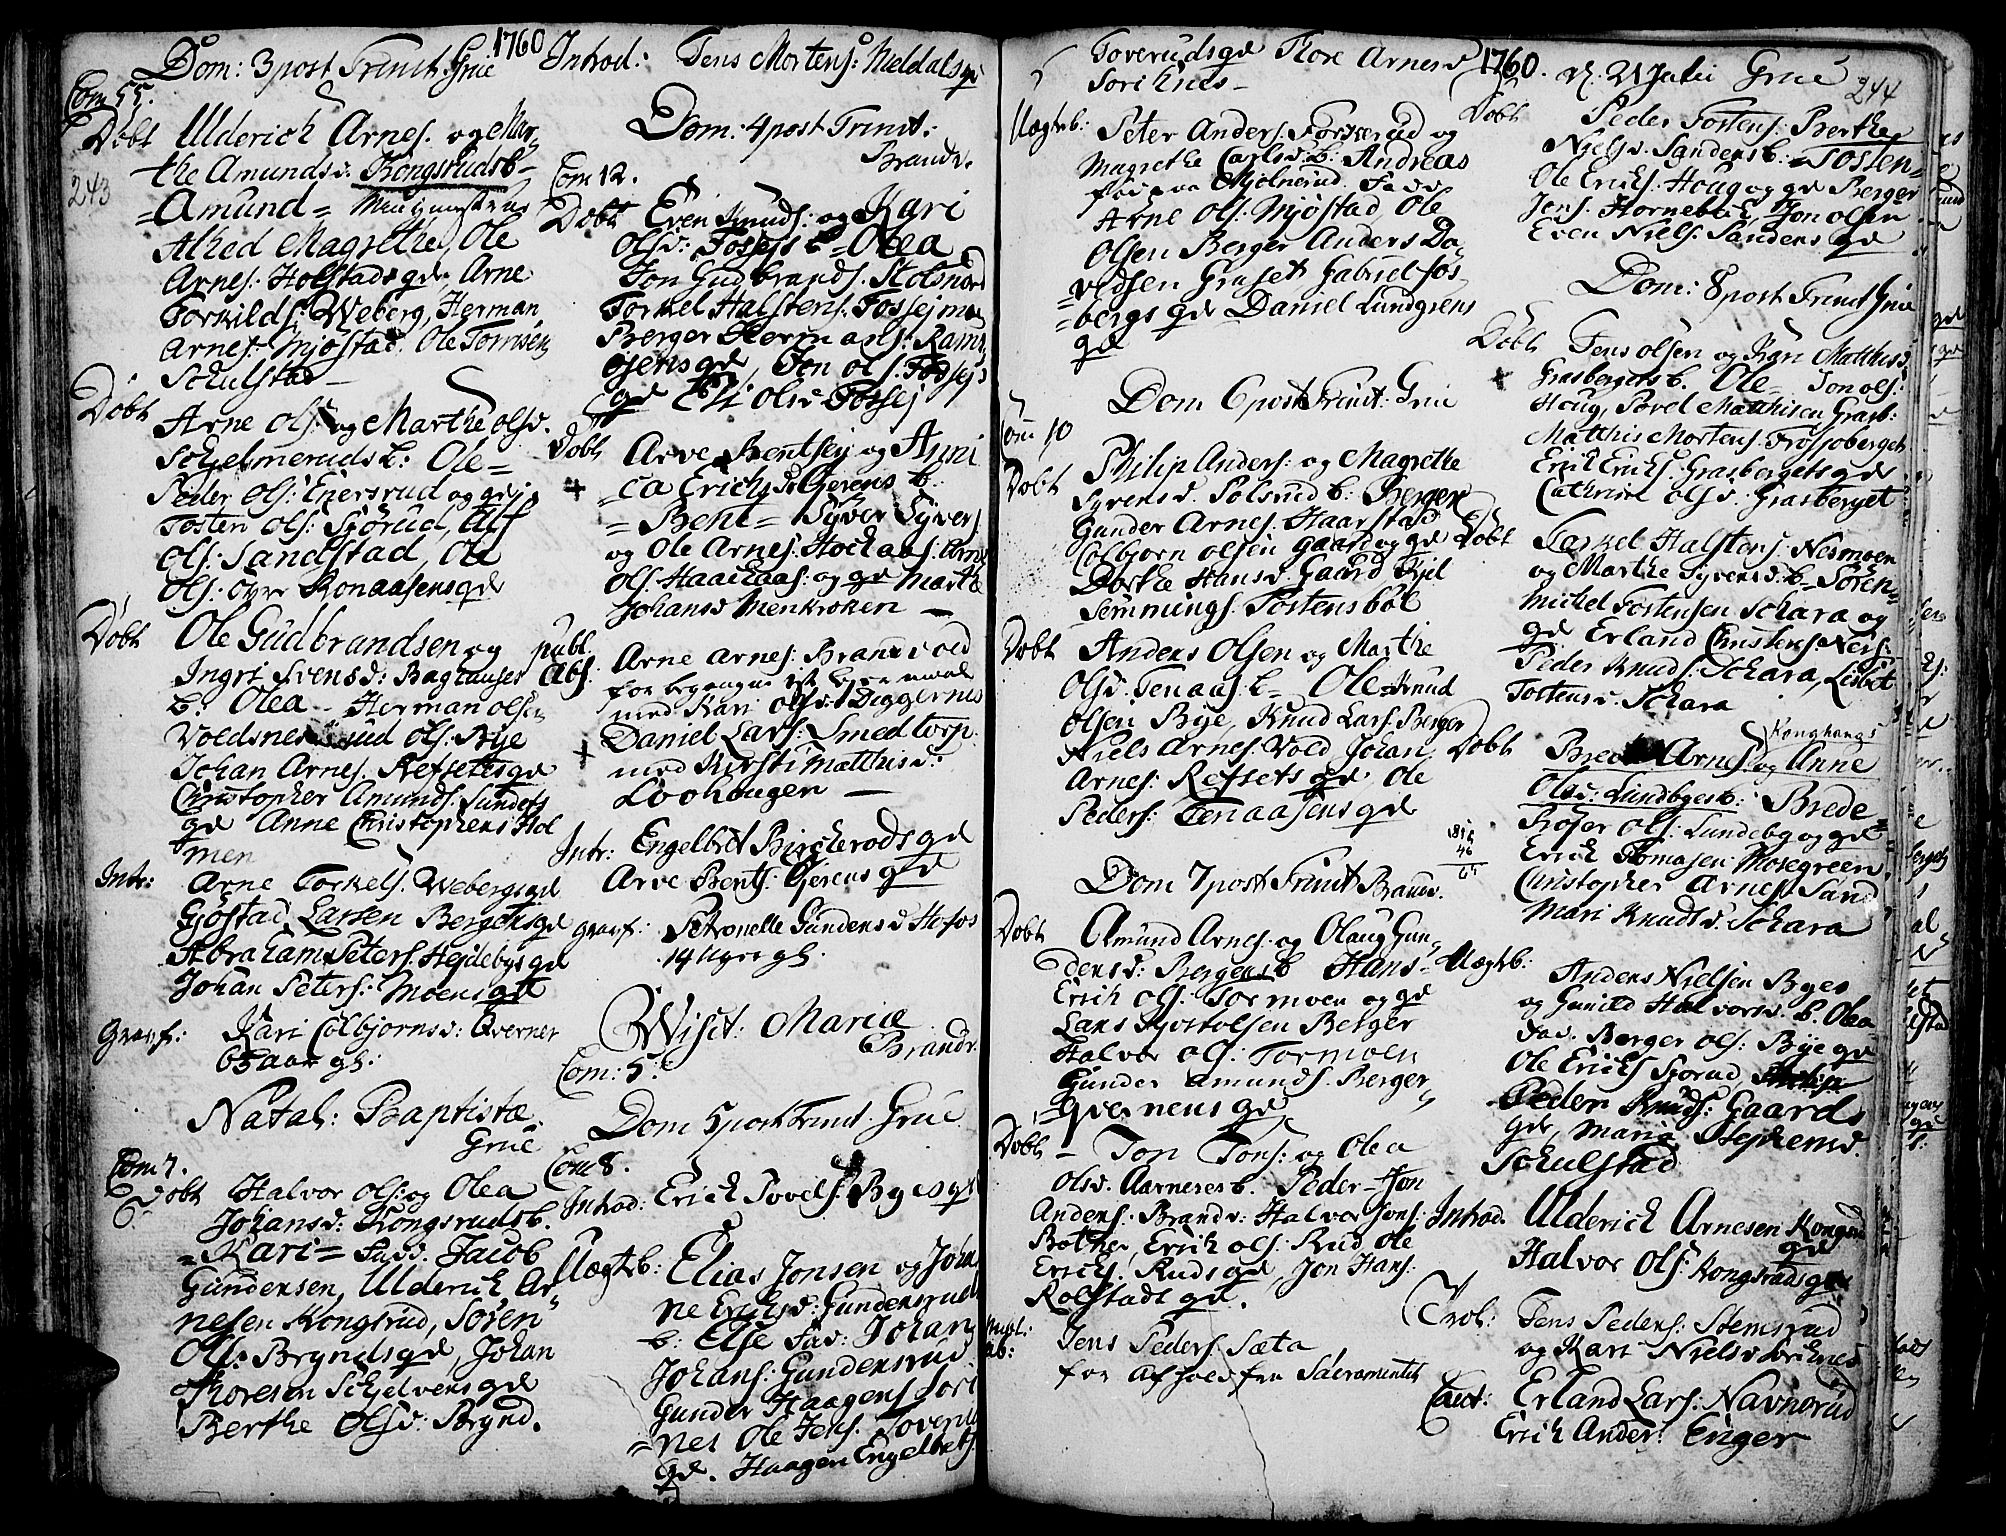 1760
Dom: 3 post Trinit. Grue
Com 55.
Døbt Ulderich Arnes. og Mar-
the Amundsd: Kongsrudsb-
243
=Amund=
Alhed Magrethe, Ole
Arnes: Holstadsgd, Arne
Torkilds: Weberg, Herman
Arnes: Mjøstad, Ole Tomisen
Schulstad -
Døbt
Arne Ols: og Marthe Olsd.
Schjelmeruds b: Ole=
Peder Ols: Enersrud og gd,
Tosten Ols: Sjørud, Alf
Ols: Sandstad, Ole
Ols: Konaasens gd
Døbt Ole Gudbrandsen og
Ingri Svensd: Baghauger
b. Olea - Herman Olsen
Voldsnes Ols: Bye
Johan Arnes. Refsetsgd
Christopher Amunds. Sundets
gd Anne Christophers: Hol
men
Intr: Arne Torkels. Webergsgd
Gjøstad Larsen Bergersgd
Abraham Peters. Hejdebysgd
Johan Peters: Moensgd
Gravf: Kari Colbjørnsd: Qverner
63 aar gl:
Natal: Baptistæ.
Grue
Com 7.
Døbt Halvor Ols: og Olea
Johansd: Kongsrudsb.
=Kari= Fad. Jacob
Gundersen, Ulderich Ar-
nesen Kongsrud, Søren
Ols: Brynds gd, Johan
Thoresen Schjelvers gd
Berthe Olsd: Brynd.
Introd: Jens Mortens: Meldals gd
Dom: 4 post Trinit:
Brandv.
Com 12.
Døbt Even Knuds: og Kari
Olsd: Fossejs b=Olea
Jon Gudbrands. Stolsnord
Torkel Halstens. Fossejmoe
Berger Hermans: Ramsø
øjens gd, Jon Ols. Fossejs
gd Eli Olsd Fossej
Døbt Arve Bentsen og Anni
ca Erichsd Gjerens b.
=Bent= Syver Syvers
og Ole Arnes. Hockaas: Arne
Ols. Haackaas: og gd Marthe
Johansd Menkroken -
publ.
Abs. Arne Arnes: Brandvold
for begangne 1st Leyermaal
med Kari Olsd: Diggernes
+ Daniel Lars: Smedtorp
med Kirsti Matthisd:
Loohaugen -
Intr: Engelbret Birckerodsgd
Arve Bents: Gjerens gd
gravf: Petronelle Gundersd Hofos
14 Uger gl.
Visit: Mariæ
Brandv.
Com: 5.
Dom 5 post Trinit. Grue
Com 8.
Introd: Erich Povels: Byes gd
Uegteb: Elias Jonsen og Joha
ne Erichsd: Gundersrud
b: Else Fad: Johan
Johans: Gundersrud
Gunder Haagens: Sori
nes Ole Jens. Toverud
gd. Haagen Engelbrets.
Toverudsgd Thore Arnesd
Soriknes -
1760.
Uægteb: Peter Anders. Torkerud og
Magrethe Carlsd. b: Andreas
Mjølnerud. Fadd
Arne Ols: Mjøstad, Ole
Olsen Berger Anders Da-
vidsen Gruset Gabriel Fos
=bergs gd Daniel Lundgrens
gd
Dom 6 post Trinit: Grue
Com 10
Døbt Philip Anders: og Magrethe
Syvensd. Solsrud b: Berger
Gunder Arnes. Haarstad
Colbjørn Olsen Gaard og gd
Dorthe Hansd. Gaard Kjel
Semmings. Tostensbøl
Døbt Anders Olsen og Marthe
Olsd. Tenaas. b= Ole=Knud
Olsen Bye, Knud Lars. Berger
Niels Arnes. Vold Johan
Arnes: Refsets gd, Ole
Peders: Tenaasens gd
Dom 7 post Trinit Brandv.
Døbt Amund Arnes. og Olaug Gun-
dersd: Bergersb Hans=
Erich Ols. Tormoen og gd
Lars Syvertsen Berger
Halvor Ols: Tormoen
Gunder Amunds. Berger
=Qvernens gd
Døbt - Jon Jons: og Olea
Olsd. Aarneses b. Peder=Jon
Anders: Brandv: Halvor Jons:
Botner, Erich Ols: Rud Ole
Erichs. Ruds gd Jon Hans:
Rolstads gd.
publ.
ab: Jens Peders Sæta
for Afhold fra Sacramentet
d. 21 Julii Grue
244
Døbt Peder Tostens: Berthe
Nielsd. Sanders b: =Tosten=
Ole Erichs: Houg og gd Berger
Jens. Hornebeck, Jon Olsen
Even Niels. Sanders gd
Dom: 8 post Trinit Grue
Døbt Jens Olsen og Kari Matthisd.
Grasbergets b. Ole= Jon Ols:
Houg, Povel Matthisen Grasb:
Matthis Mortens. Frossoberget
Erich Erichs: Grasbergets gd
Cathrine Olsd: Grasberget
Døbt Torkel Halstens. Nesmoen
og Marthe Syvensd. b=Søren=
Michel Tostensen Schara og
gd Erland Christens: Ners:
Peder Knuds. Schara, Lisbet
Tostensd. Schara
Konghaugs
Døbt Brede Arnes. og Anne
Olsd: Lundbyes b: Brede=
Ols: Lundeby og gd
Erich Tomasen Mosegreen
Christopher Arnes. Sand
Mari Knudsd. Schara
Uægteb: Anders Nielsen Byes
og Gunild Halvorsd. b. Olea
Fad. Berger Ols: Bye gd
Ole Erichs Sjørud,
Peder Knuds: Gaards
gd, Marie Stephensd.
Schulstad
Introd. Ulderich Arnesen Kongsrud
gd
Halvor Ols: Kongsruds gd
Trol: Jens Peders: Stemsrud
og Kari Nielsd Soriknes
Caut: Erland Lars. Navnerud
Erich Anders: Enger